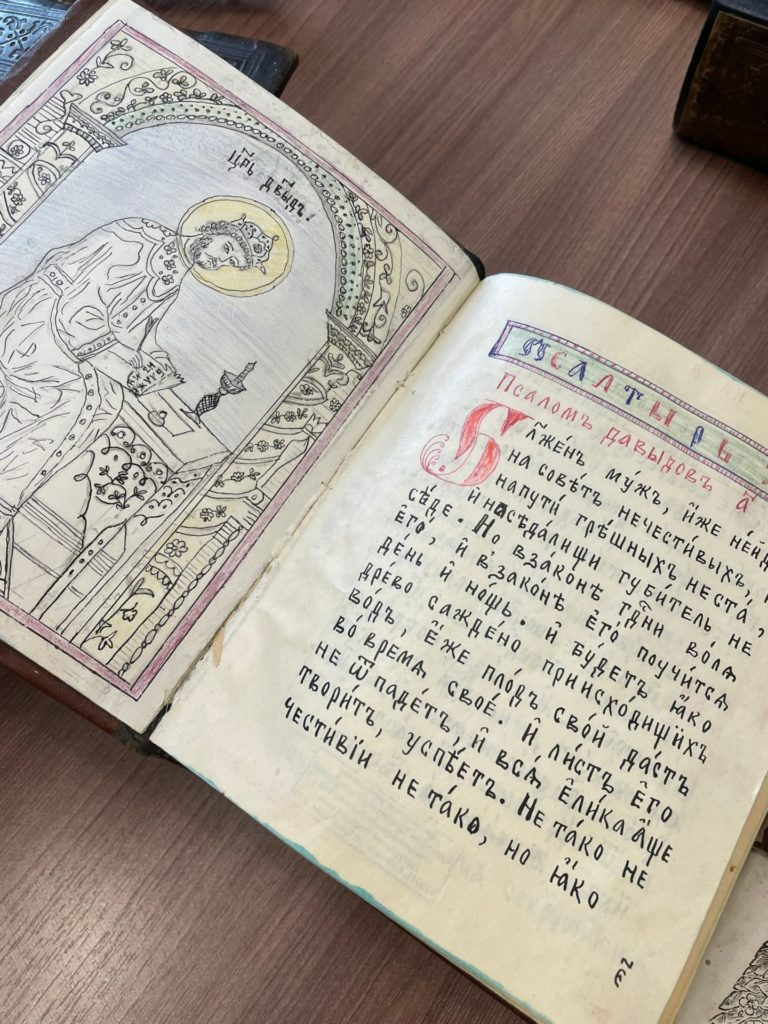 Цр҃ь дв҃дъ!
Псалтырь
Псаломъ давыдовъ а҃
Бл҃же́нъ му́жъ, и҆́же
на совѣ́тъ нечести́выхъ,
напути́ грѣ́шныхъ неста́,
и҆ насѣда́лищи губи́тель не
сѣ́де. Но взако́нѣ гд҃ни во́лѧ
є҆го̀, и҆ взако́нѣ є҆го̀ поучи́тсѧ
де́нь и҆ но́щь. и҆ бу́детъ ꙗ҆́ко
дре́во сажде́но приисхо́дищихъ
во́дъ, є҆́же пло́дъ сво́й да́стъ
во́ времѧ своѐ. И҆ ли́стъ є҆го̀
не ѿпаде́тъ, и҆ всѧ́ є҆ли́ка а҆́ще
твори́тъ, успѣ́етъ. Не та́ко не
чести́вїи не та́ко, но ꙗ҆́ко